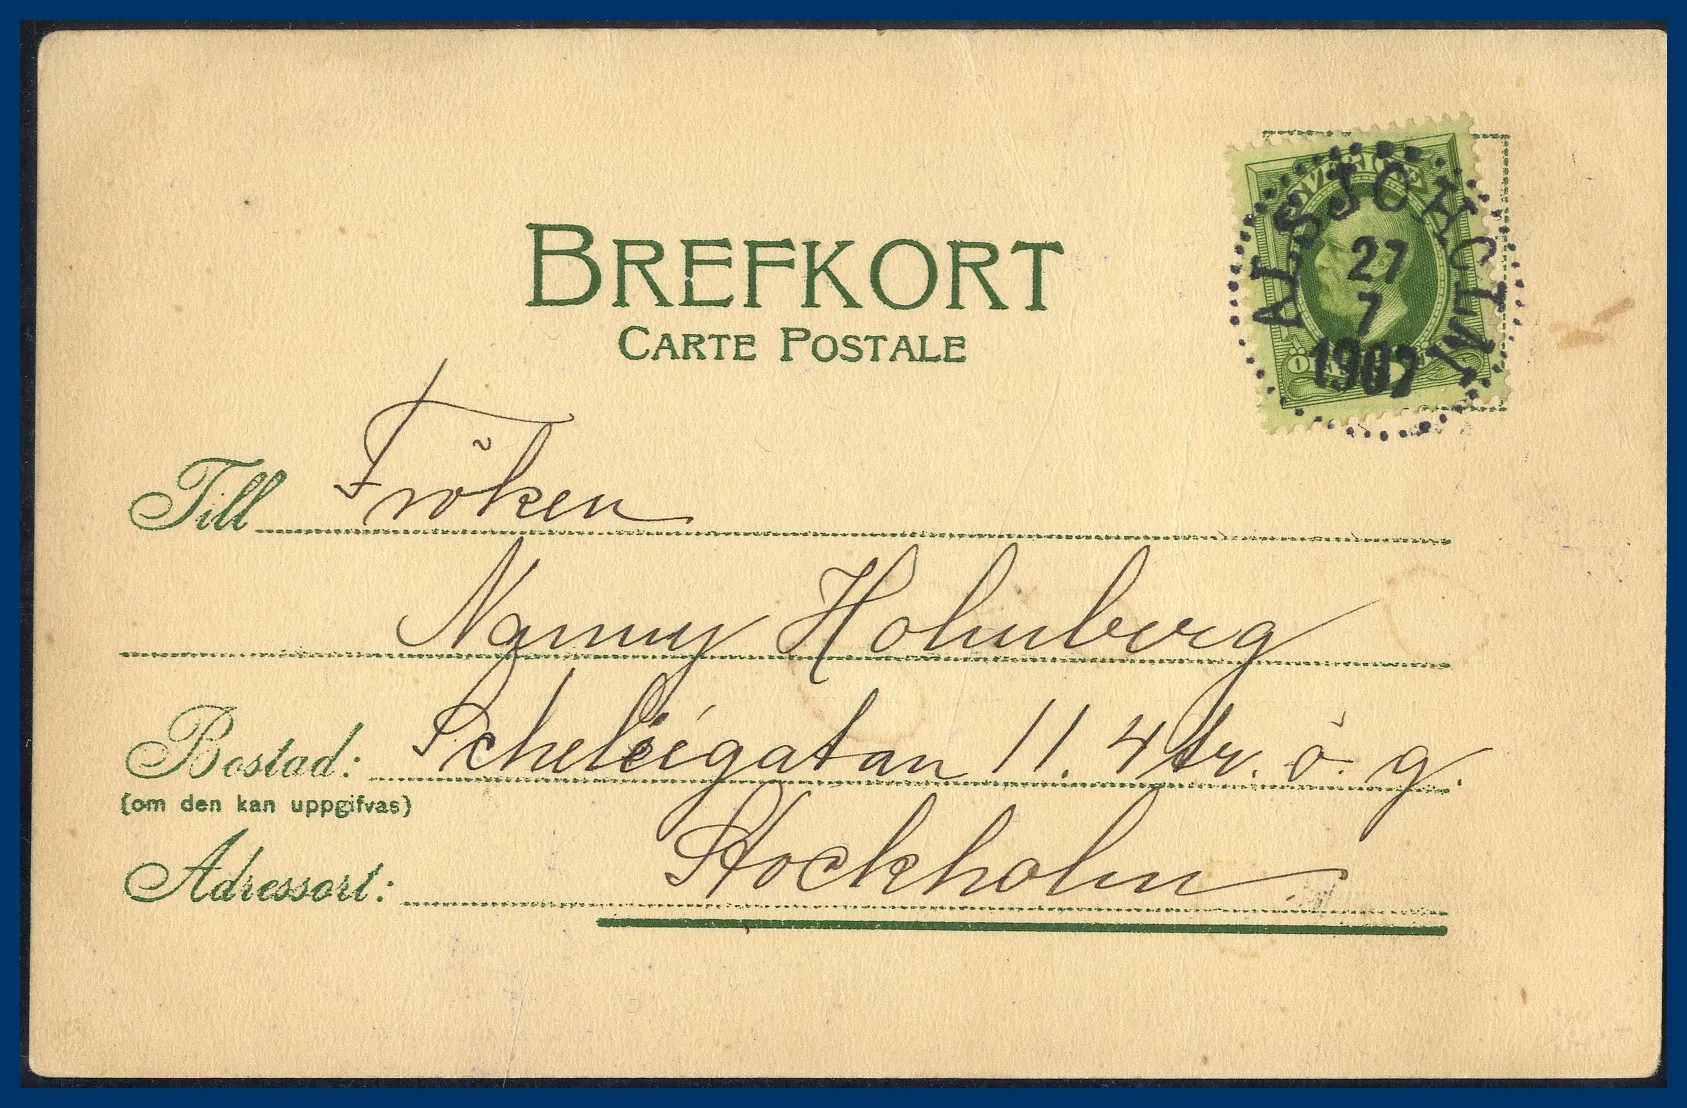 BREFKORT
CARTE POSTALE
ALSJÖHOLM
27
7
1902
Till Fröken
Nanny Holmberg
Bostad: Scheleigatan 11. 4 tr. ö. g.
(om den kan uppgifvas)
Adressort: Stockholm